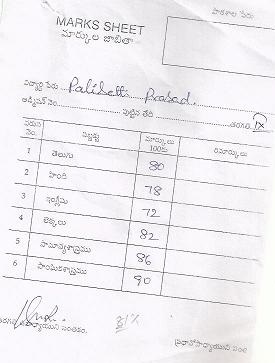 MARKS SHEET
మార్కుల జాబితా
పాఠశాల పేరు
విద్యార్థి పేరు Palisetti Prasad.
అడ్మిషన్ నెం. పుట్టిన తేది తరగతి IX
వరుస నెం. సబ్జెక్టు మార్కులు 100కు రిమార్కులు
1 తెలుగు 80
2 హింది 78
3 ఇంగ్లీషు 72
4 లెక్కలు 82
5 సామాన్యశాస్త్రము 86
6 సాంఘికశాస్త్రము 90
81%